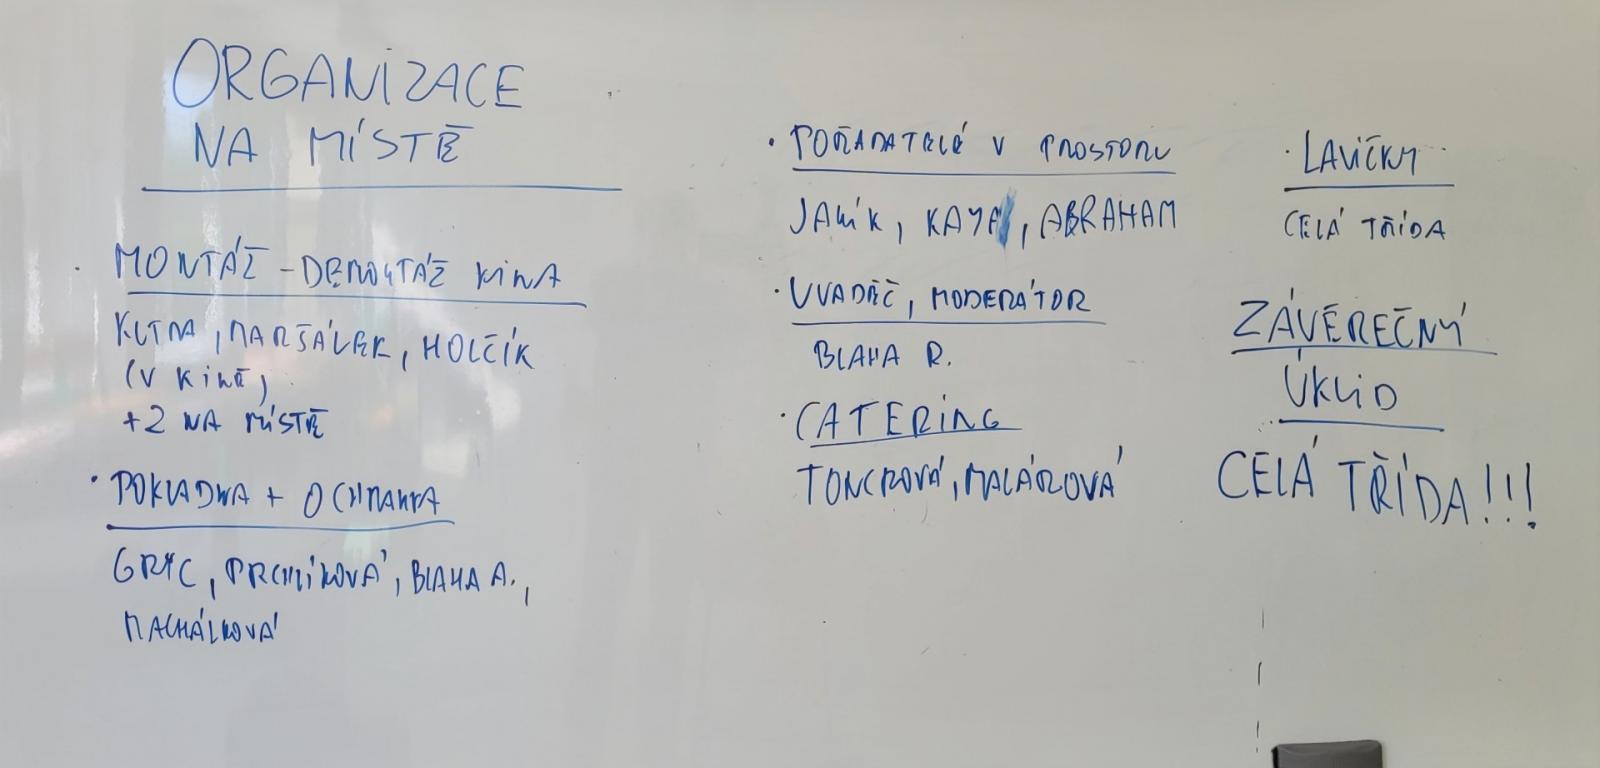 ORGANIZACE
NA MÍSTĚ
· MONTÁŽ - DEMONTÁŽ KINA
KLIMA, MARŠÁLEK, HOLČÍK
(V KINĚ)
+2 NA MÍSTĚ
· POKLADNA + OCHRANKA
GRYC, PRCHLÍKOVÁ, BLAHA A.,
MACHÁLKOVÁ
· POŘADATELÉ V PROSTORU
JANÍK, , ABRAHAM
· UVADĚČ, MODERÁTOR
BLAHA R.
· CATERING
TONCROVÁ, MALÁROVÁ
· LAVIČKY
CELÁ TŘÍDA
ZÁVĚREČNÝ
ÚKLID
CELÁ TŘÍDA!!!